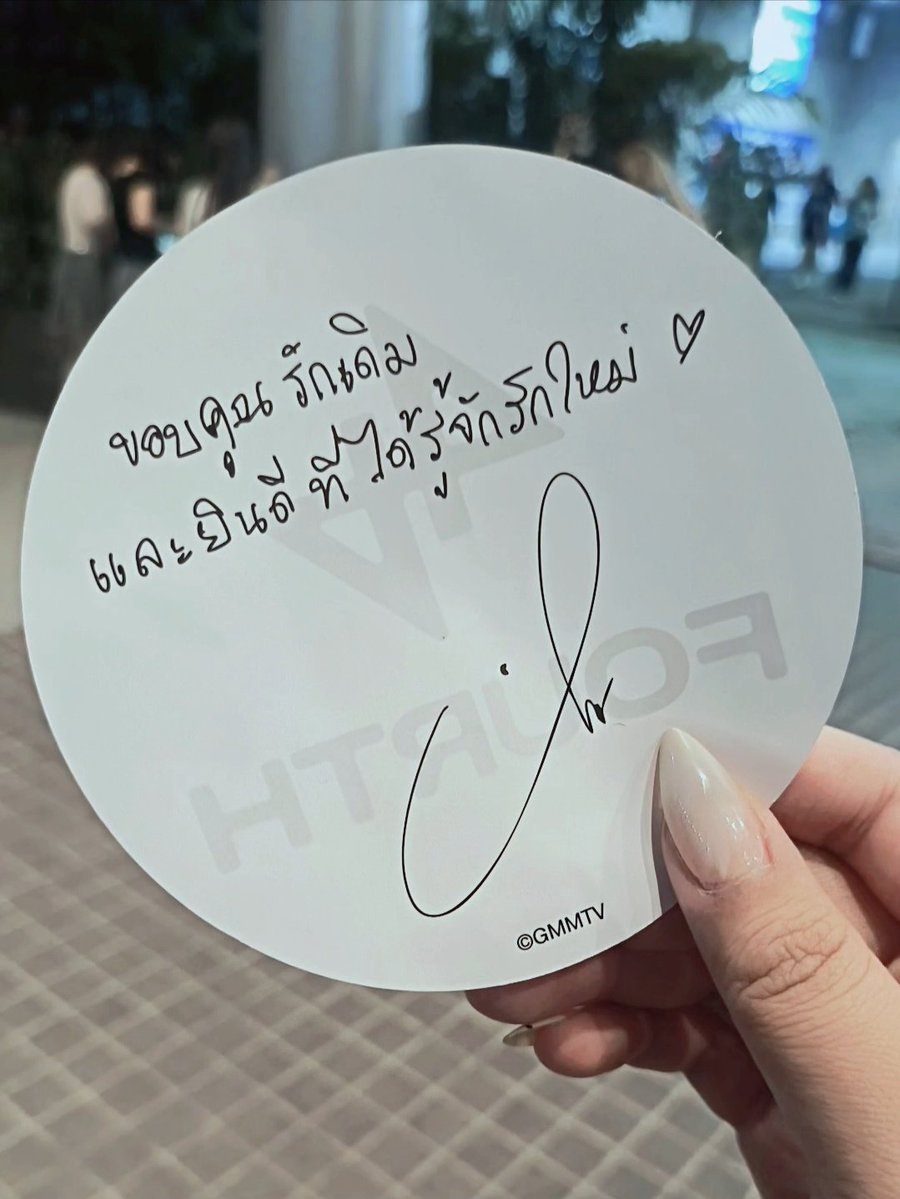 ขอบคุณ รักเดิม
และยินดี ที่ ได้รู้จักรักใหม่ ♡
FOURTH
©GMMTV